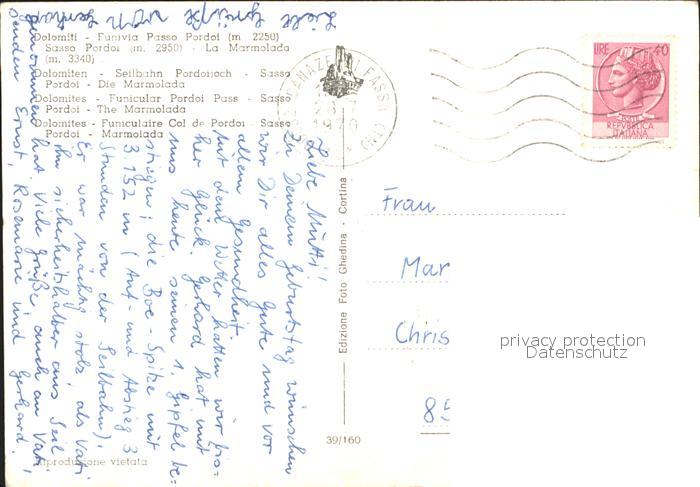 Dolomiti - Funivia Passo Pordoi (m. 2250)
Sasso Pordoi (m. 2950) - La Marmolada
(m. 3340)
Dolomiten - Seilbahn Pordoijoch - Sasso
Pordoi - Die Marmolada
Dolomites - Funicular Pordoi Pass - Sasso
Pordoi - The Marmolada
Dolomites - Funiculaire Col de Pordoi - Sasso
Pordoi - Marmolada
CANAZEI DI FASSA (TN)
LIRE 40
POSTE
REPVBBLICA
ITALIANA
Liebe Mutti!
Zu Deinem Geburtstag wünschen
wir Dir alles Gute und vor
allem Gesundheit.
Mit dem Wetter hatten wir bis=
her Glück. Gerhard hat mit
uns heute seinen 1. Gipfel be=
stiegen: die Boe-Spitze mit
3.152 m (Auf- und Abstieg 3
Stunden von der Seilbahn).
Er war mächtig stolz, als Vati
ihn sicherheitshalber aus Seil
genommen hat. Viele Grüße, auch an Vati,
senden Ernst, Rosemarie und Gerhard.
Liebe Grüße von
Edizione Foto Ghedina - Cortina
Frau
Mar
Chris
85
privacy protection
Datenschutz
39/160
Riproduzione vietata